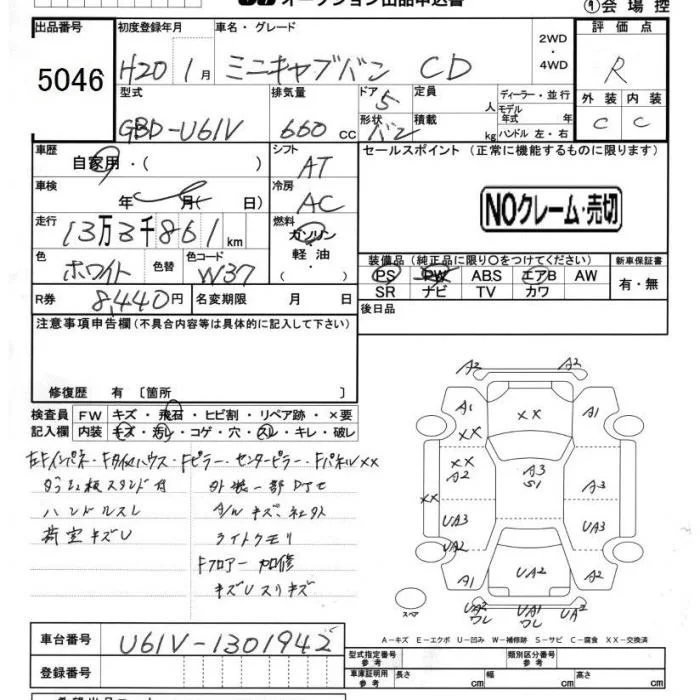 オークション出品申込書
① 会場控
出品番号 5046
初度登録年月 H20 1月
車名・グレード ミニキャブバン CD
2WD・4WD
評価点 R
外装 C 内装 C
型式 GBD-U61V
排気量 660cc
ドア 5 形状 バン
定員 人 積載 kg
ディーラー・並行
モデル年式 年
ハンドル 左・右
車歴 自家用・( )
シフト AT
セールスポイント (正常に機能するものに限ります)
NOクレーム・売切
車検 年 月( 日)
冷房 AC
走行 13万3千861km
燃料 ガソリン・軽油・
色 ホワイト 色替
色コード W37
R券 8,440円
名変期限 月 日
装備品 (純正品に限り○をつけてください)
PS PW ABS エアB AW
SR ナビ TV カワ
新車保証書 有・無
後日品
注意事項申告欄(不具合内容等は具体的に記入して下さい)
修復歴 有 〔箇所 〕
検査員記入欄
FW キズ・飛石・ヒビ割・リペア跡・×要
内装 キズ・汚れ・コゲ・穴・スレ・キレ・破レ
左Fインパネ・Fタイヤハウス・Fピラー・センターピラー・FパネルXX
ハンドルスレ
荷室キズU
ライトクモリ
Fフロアー 加修
キズUスリキズ
A2 A2
A1 XX A1
XX
XX A2 A3 S1 A3
UA3 UA3
UA2
A1 UA2 A2
スペア
UA2 ワレ UA1 ワレ UA3
A-キズ E-エクボ U-凹み W-補修跡 S-サビ C-腐食 XX-交換済
車台番号 U61V-1301942
登録番号
型式指定番号 参考
類別区分番号 参考
車庫証明用 参考 長さ cm 幅 cm 高さ cm